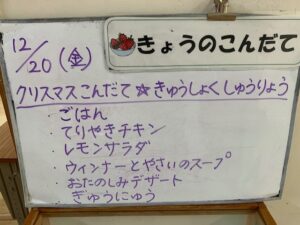 12/20(金)
きょうのこんだて
クリスマスこんだて☆きゅうしょくしゅうりょう
・ごはん
・てりやきチキン
・レモンサラダ
・ウィンナーとやさいのスープ
・おたのしみデザート
・ぎゅうにゅう